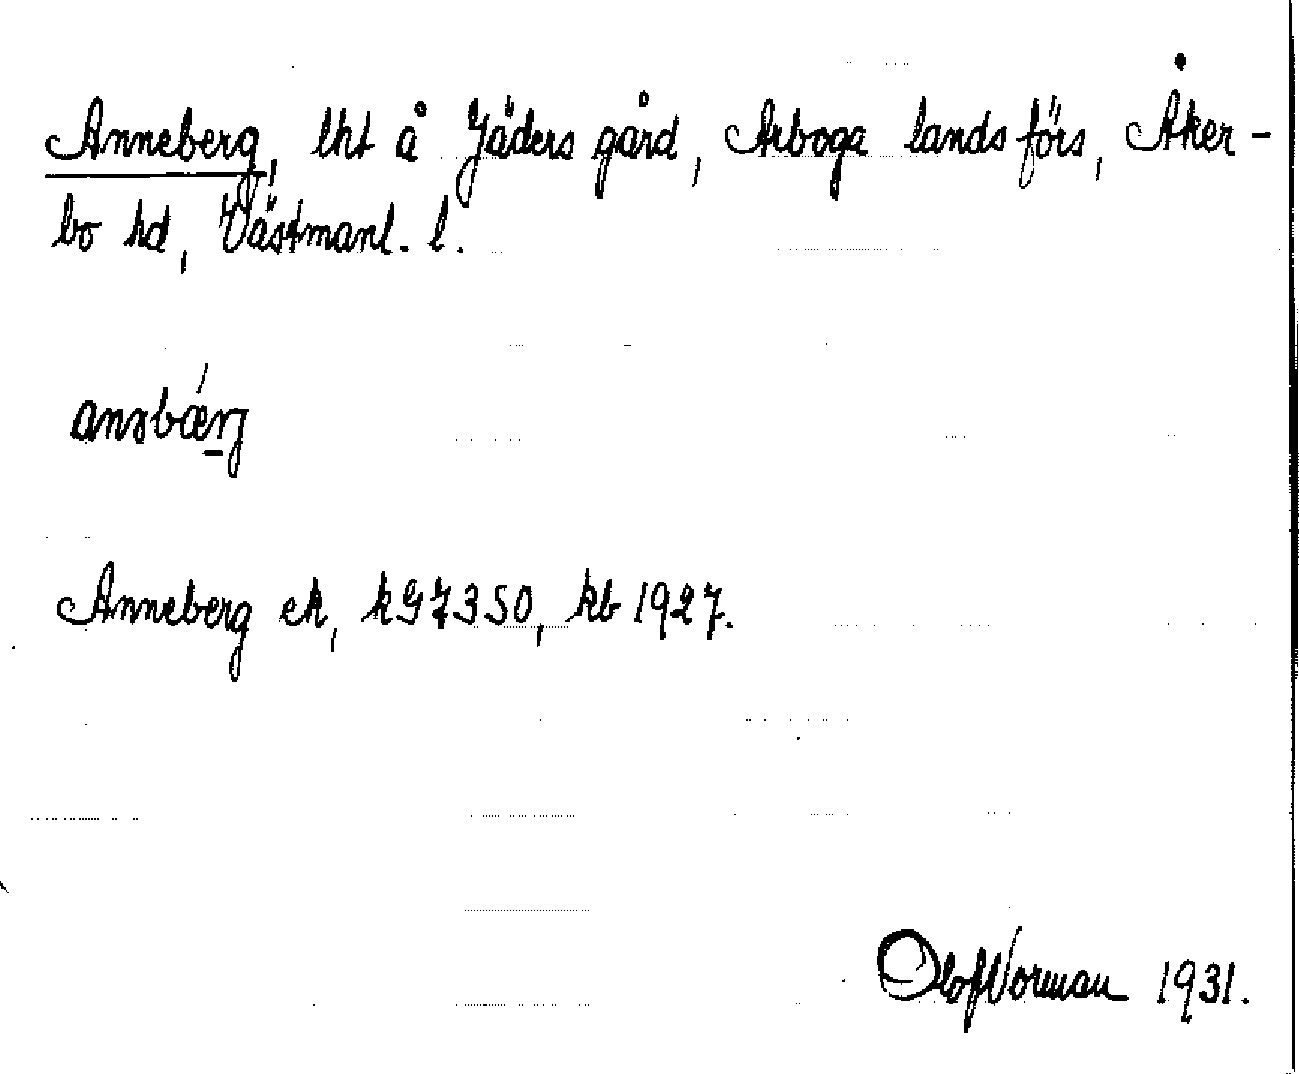 Anneberg, lht å Jäders gård, Arboga landsförs, Åker-
bo hd, Västmanl. l.
Anneberg ek, k G7350, kb 1927.
Olof Norman 1931.